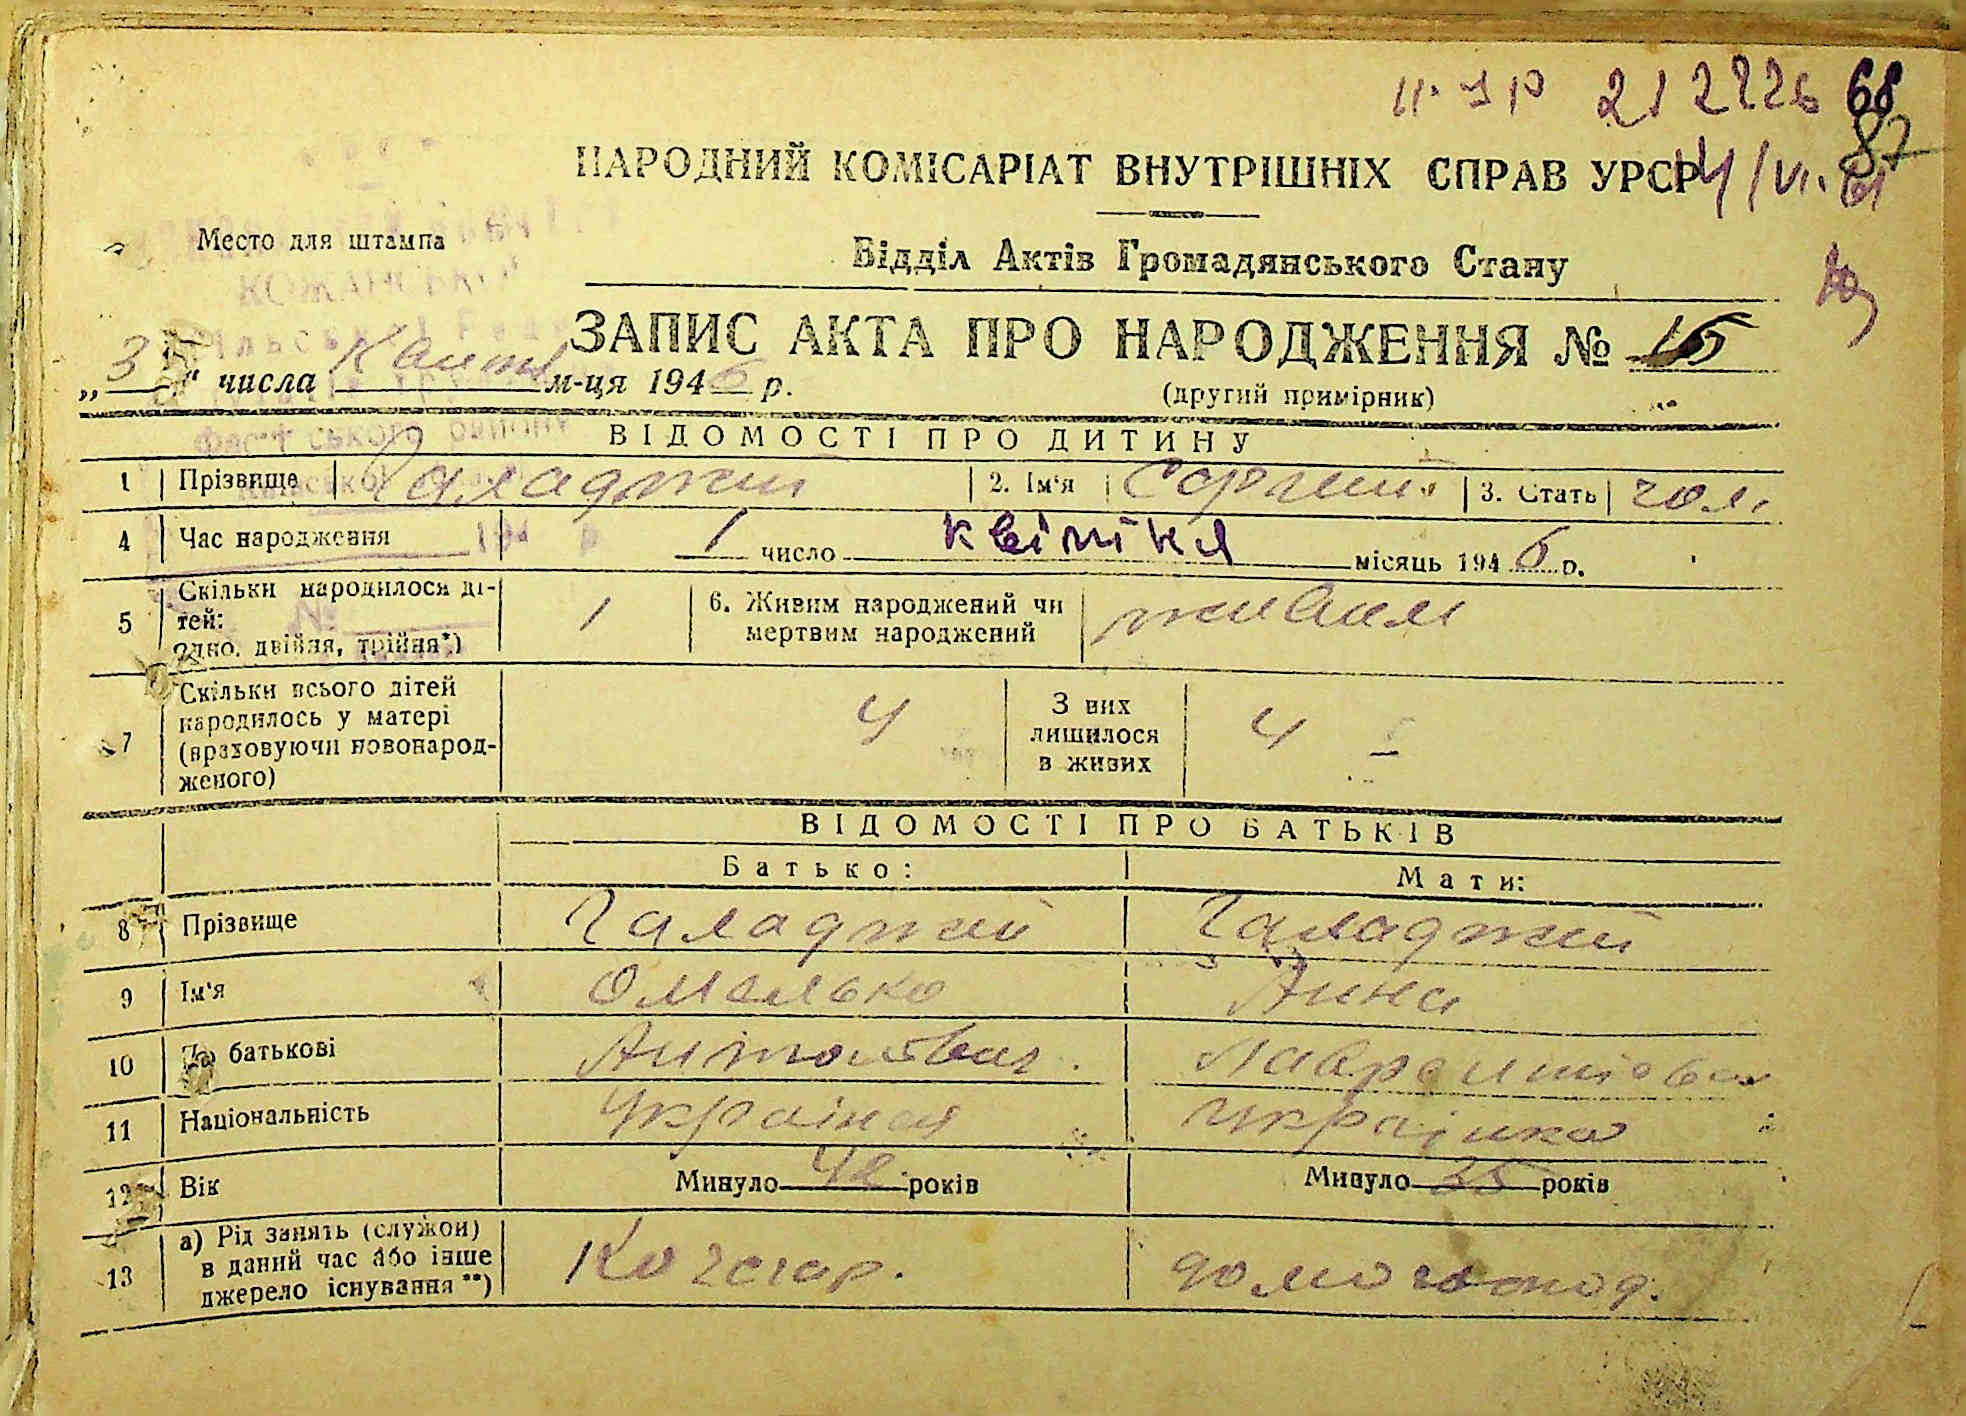 21222б 68
87
НАРОДНИЙ КОМІСАРІАТ ВНУТРІШНІХ СПРАВ УРСР
14/VI. 61
Место для штампа
Відділ Актів Громадянського Стану
КОЖАНСЬК
ЗАПИС АКТА ПРО НАРОДЖЕННЯ № 15
„3“ числа м-ця 1946 р.
(другий примірник)
ВІДОМОСТІ ПРО ДИТИНУ
1 Прізвище Галаджий 2. Ім'я Сергий 3. Стать чол.
4 Час народження 1 число квітня місяць 1946 р.
5 Скільки народилося ді-
тей:
одно, двійня, трійня*)
1
6. Живим народжений чи
мертвим народжений
живим
7 Скільки всього дітей
народилось у матері
(враховуючи новонарод-
женого)
4
З них
лишилося
в живих
4
ВІДОМОСТІ ПРО БАТЬКІВ
Батько: Мати:
8 Прізвище Галаджий Галаджий
9 Ім'я Омелько Анна
10 По батькові Антонович Лаврентіевна
11 Національність Українец Українка
12 Вік Минуло 42 років Минуло 35 років
13 а) Рід занять (служби)
в даний час або інше
джерело існування **)
Кочегар. домогоспод.